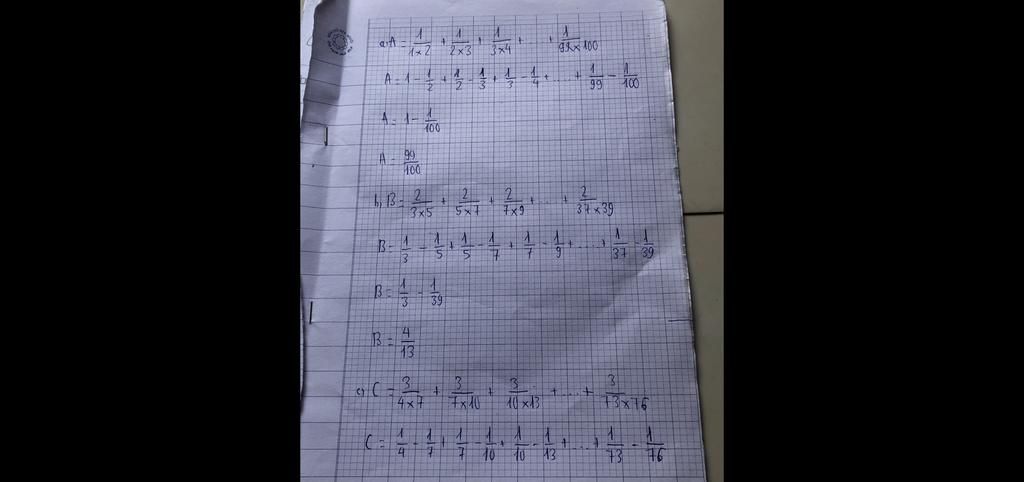 a, A = 1/1×2 + 1/2×3 + 1/3×4 + ... + 1/99×100
A = 1 - 1/2 + 1/2 - 1/3 + 1/3 - 1/4 + ... + 1/99 - 1/100
A = 1 - 1/100
A = 99/100
b, B = 2/3×5 + 2/5×7 + 2/7×9 + ... + 2/37×39
B = 1/3 - 1/5 + 1/5 - 1/7 + 1/7 - 1/9 + ... + 1/37 - 1/39
B = 1/3 - 1/39
B = 4/13
c, C = 3/4×7 + 3/7×10 + 3/10×13 + ... + 3/73×76
C = 1/4 - 1/7 + 1/7 - 1/10 + 1/10 - 1/13 + ... + 1/73 - 1/76